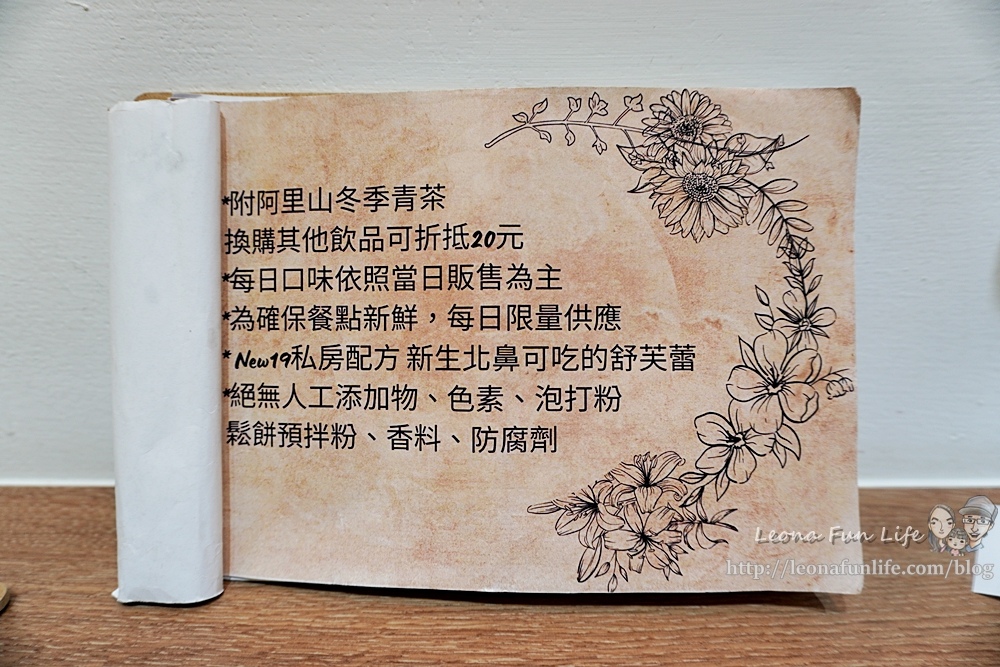 *附阿里山冬季青茶
換購其他飲品可折抵20元
*每日口味依照當日販售為主
*為確保餐點新鮮，每日限量供應
* New19私房配方 新生北鼻可吃的舒芙蕾
*絕無人工添加物、色素、泡打粉
鬆餅預拌粉、香料、防腐劑
Leona Fun Life
http://leonafunlife.com/blog